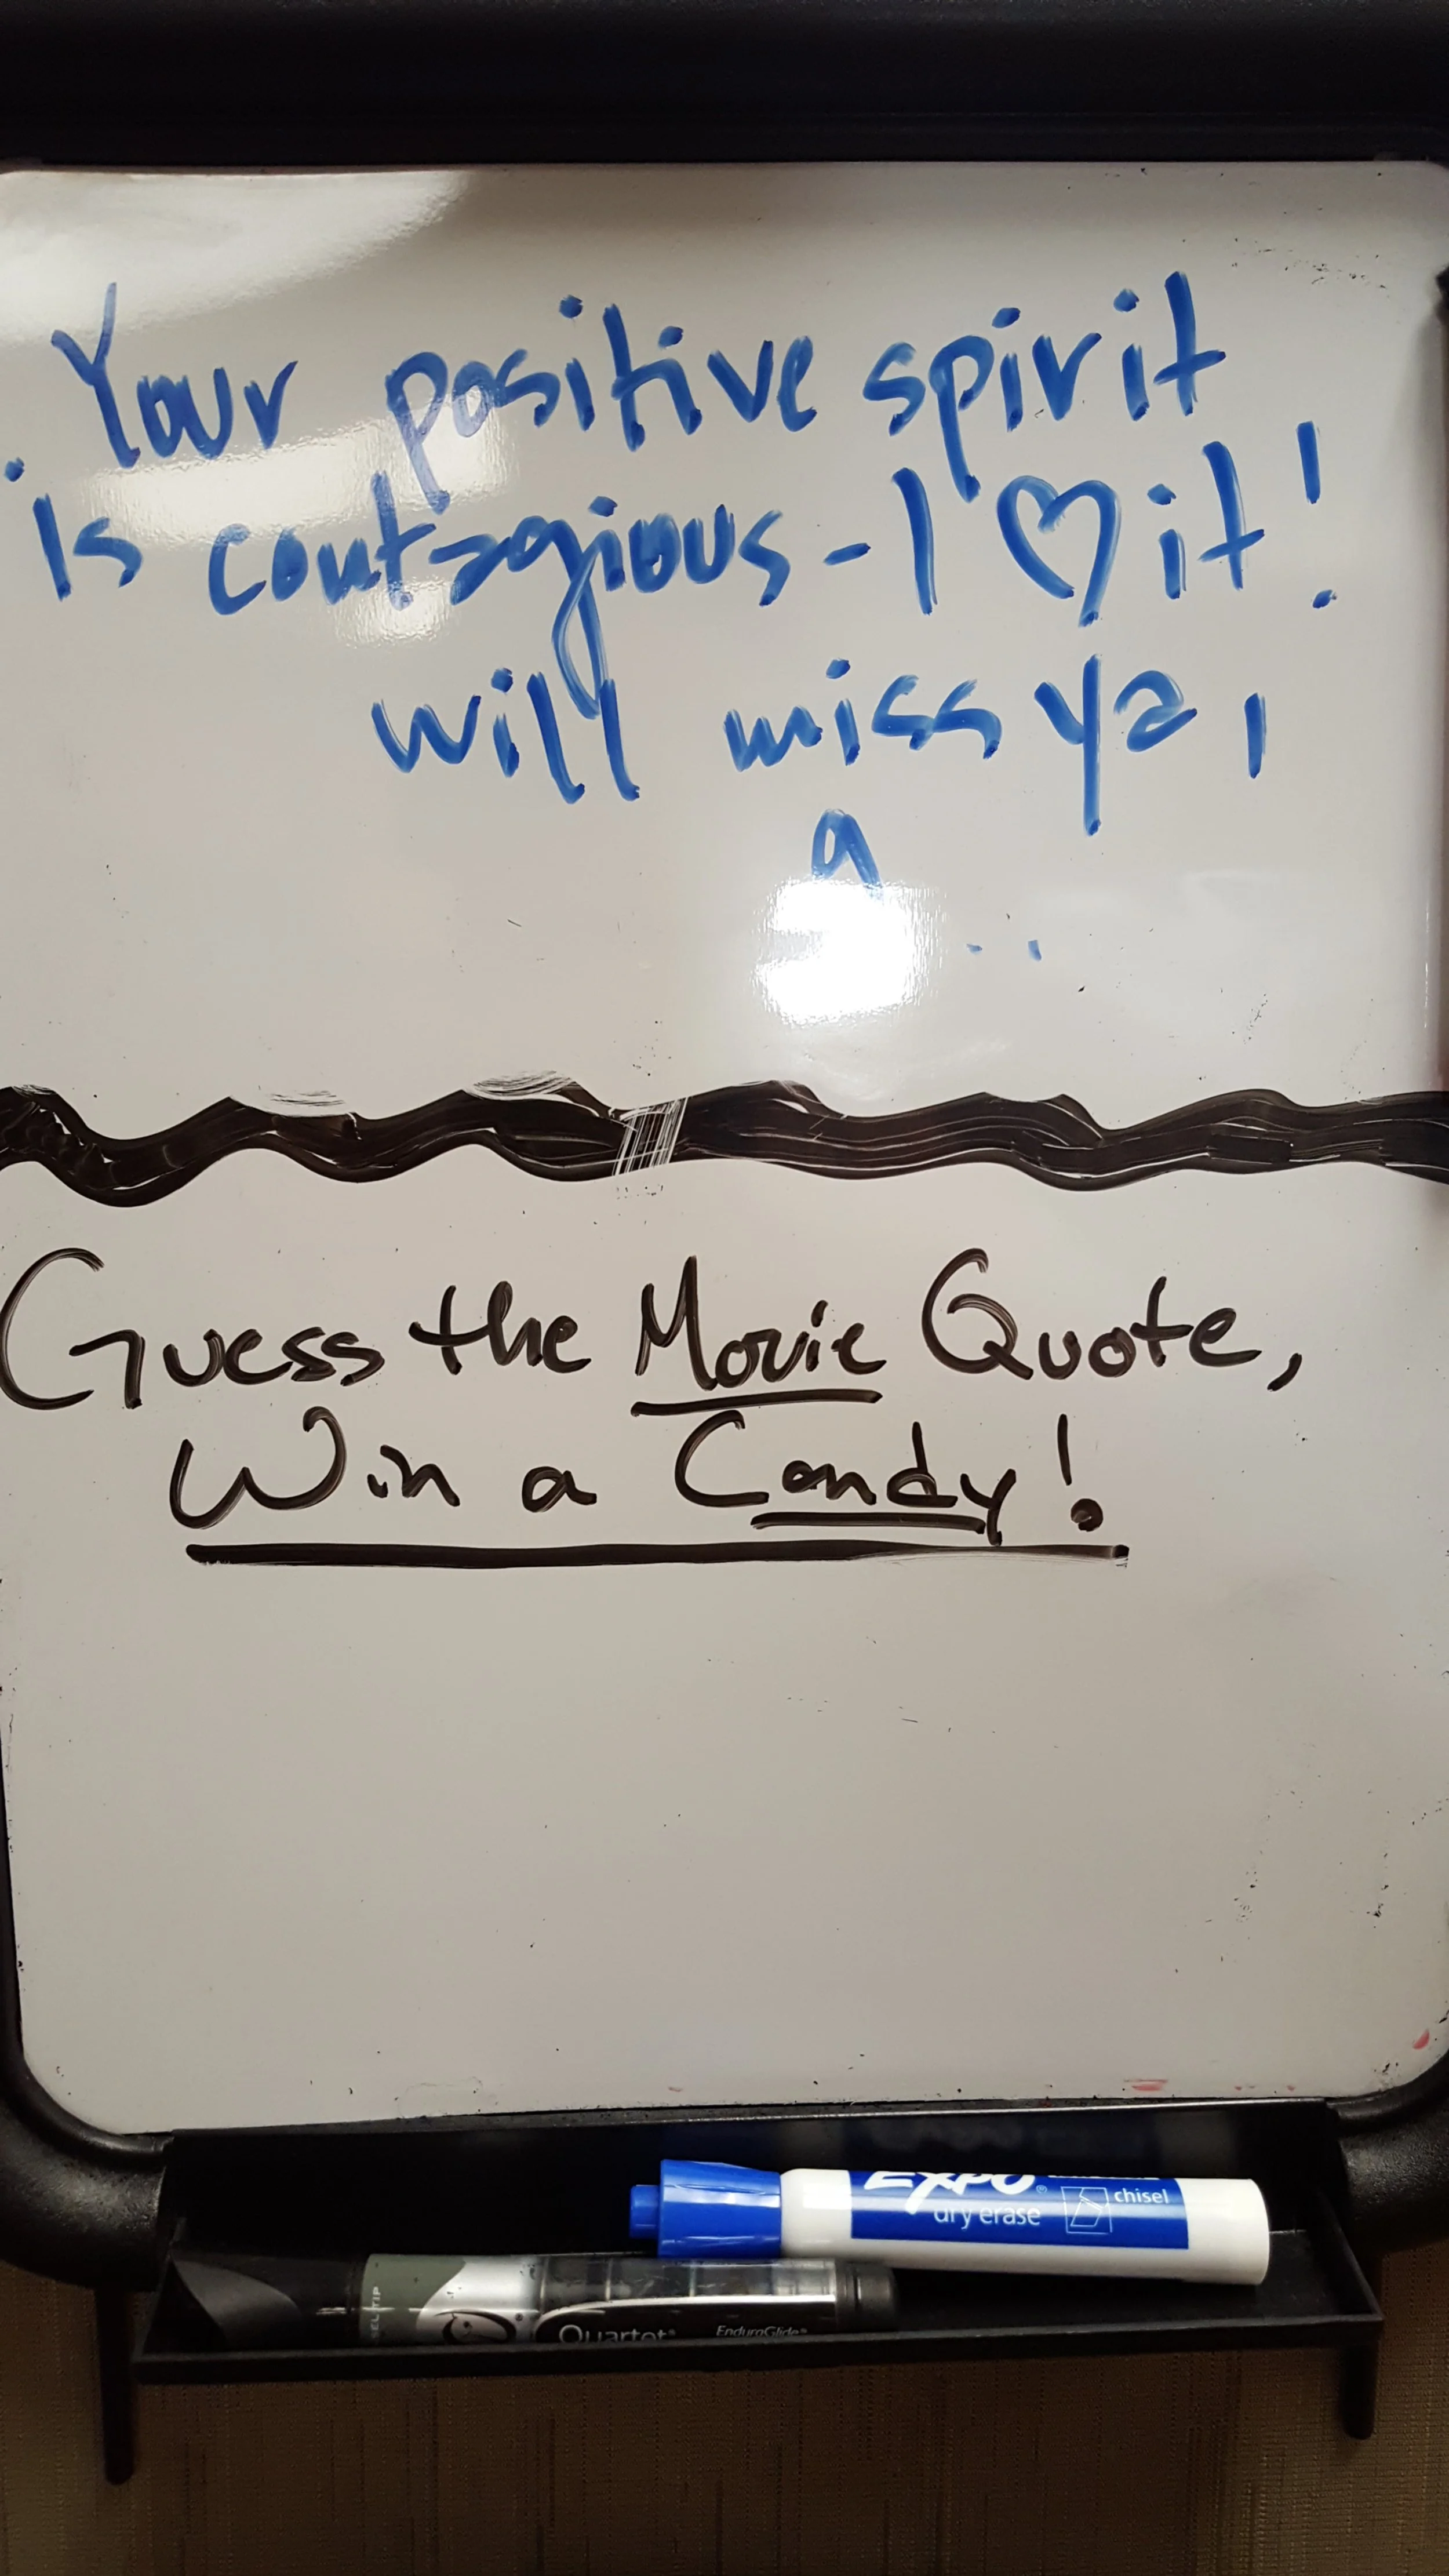 Your positive spirit
is contagious - I ♡ it!
will miss ya,
Guess the Movie Quote,
Win a Candy!
EXPO®
dry erase
chisel
Quartet® EnduroGlide®